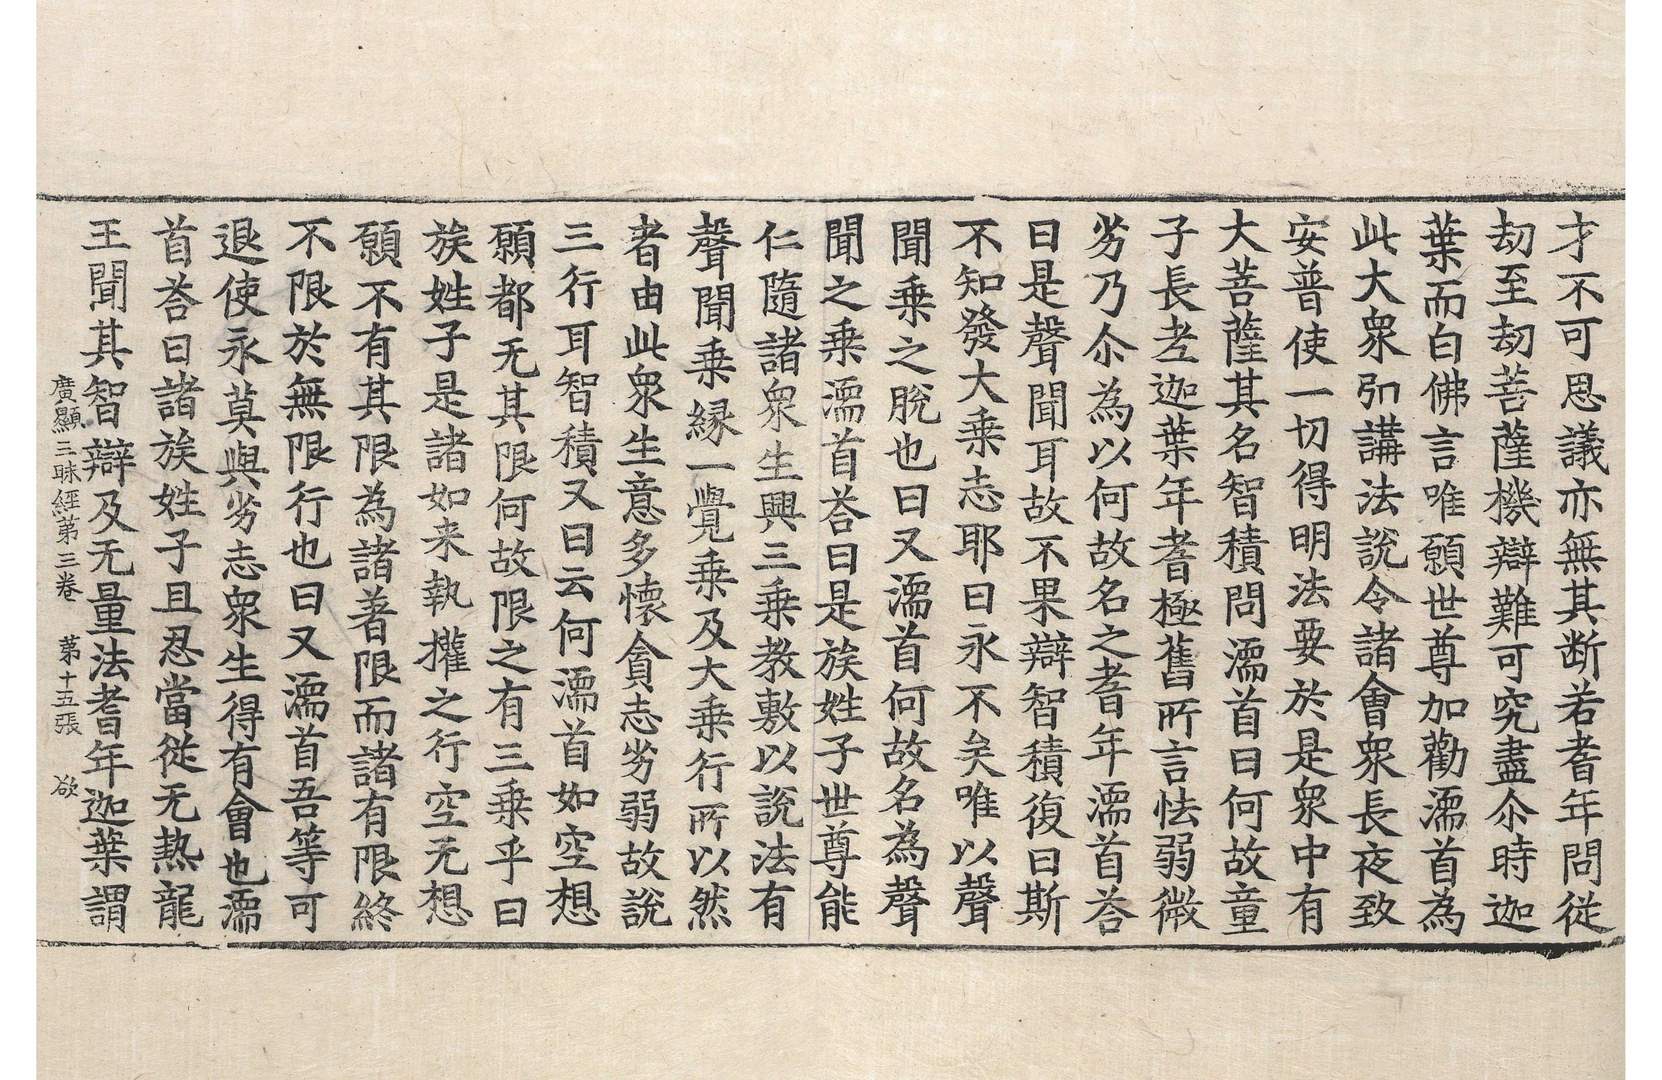 才不可思議亦無其断若耆年問從
劫至劫菩薩機辯難可究盡尒時迦
葉而白佛言唯願世尊加勸濡首為
此大衆弘講法說令諸會衆長夜致
安普使一切得明法要於是衆中有
大菩薩其名智積問濡首曰何故童
子長老迦葉年耆極舊所言怯弱微
劣乃尒為以何故名之耆年濡首荅
曰是聲聞耳故不果辯智積復曰斯
不知發大乘志耶曰永不矣唯以聲
聞乘之脫也曰又濡首何故名為聲
聞之乘濡首荅曰是族姓子世尊能
仁隨諸衆生興三乘教敷以說法有
聲聞乘縁一覺乘及大乘行所以然
者由此衆生意多懷貪志劣弱故說
三行耳智積又曰云何濡首如空想
願都无其限何故限之有三乘乎曰
族姓子是諸如来執權之行空无想
願不有其限為諸著限而諸有限終
不限於無限行也曰又濡首吾等可
退使永莫與劣志衆生得有會也濡
首荅曰諸族姓子且忍當從无熱龍
王聞其智辯及无量法耆年迦葉謂
廣顯三昧經第三卷 第十五張 欲